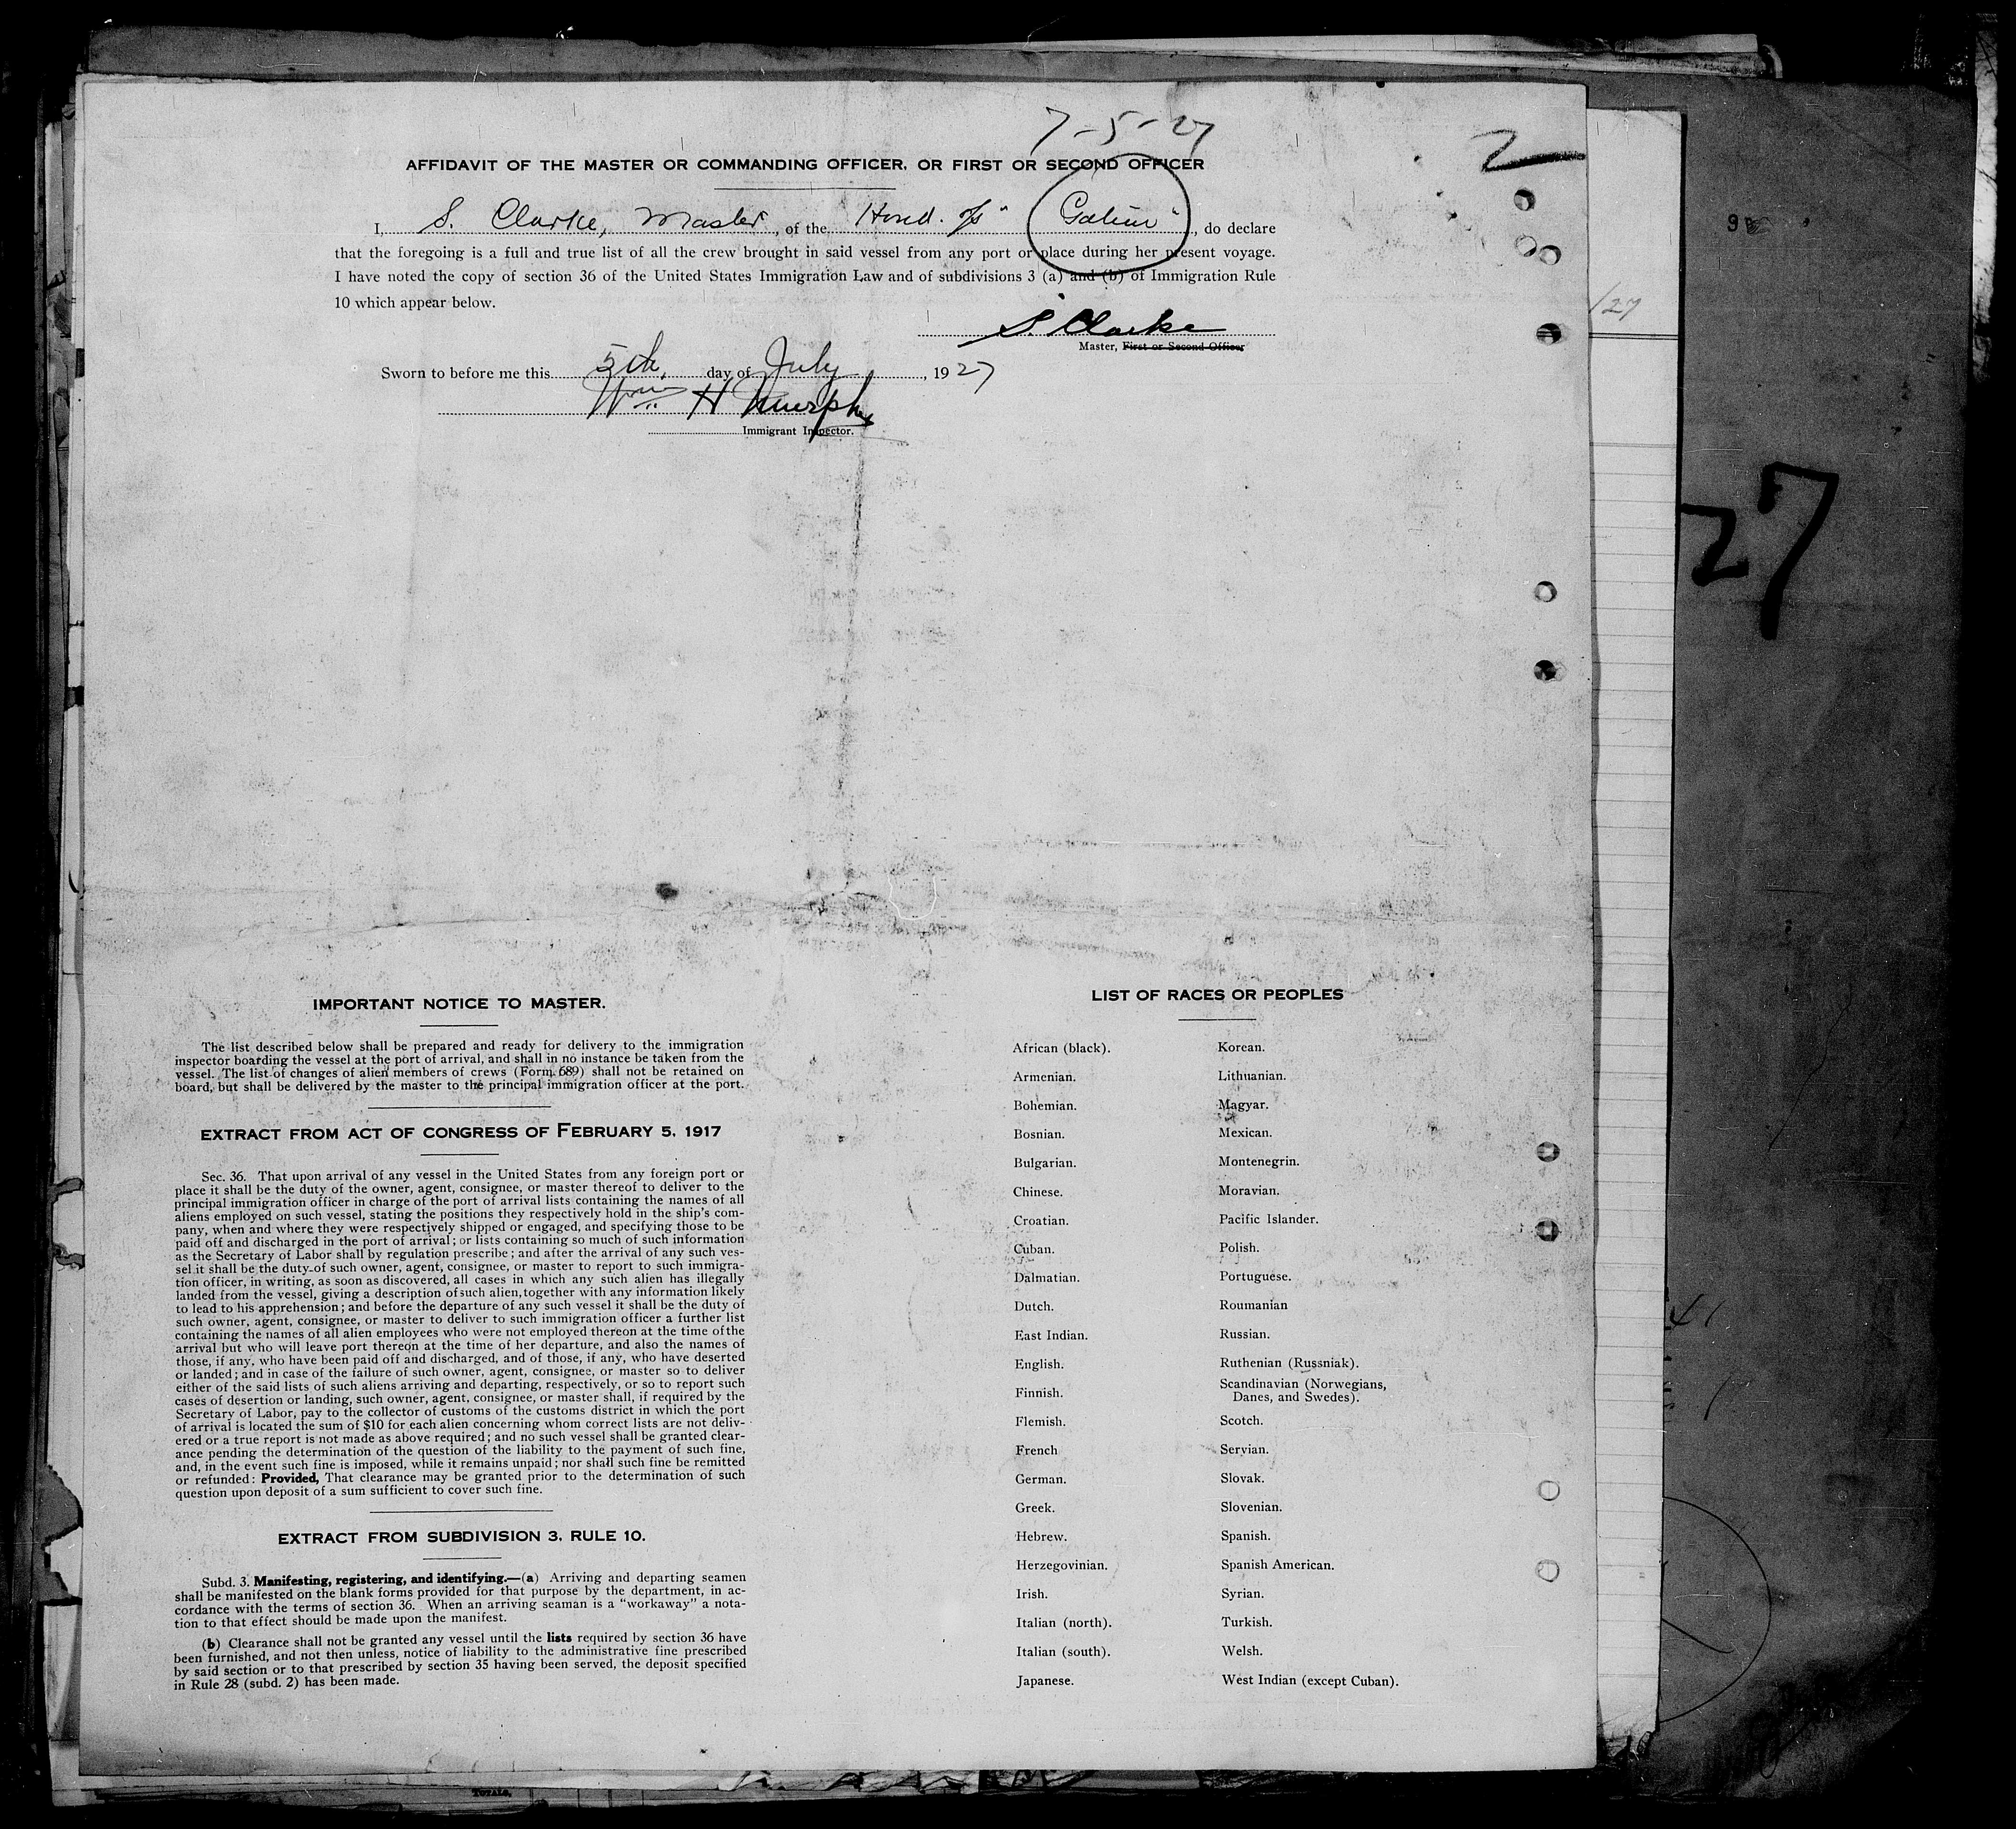 7-5-27
2
AFFIDAVIT OF THE MASTER OR COMMANDING OFFICER, OR FIRST OR SECOND OFFICER
I, S. Clarke, Master, of the Hond. , do declare
that the foregoing is a full and true list of all the crew brought in said vessel from any port or place during her present voyage.
I have noted the copy of section 36 of the United States Immigration Law and of subdivisions 3 (a) and (b) of Immigration Rule
10 which appear below.
S. Clarke
Master, First or Second Officer
Sworn to before me this 5th. day of July, 1927
Wm. H Murphy
Immigrant Inspector.
/27
27
IMPORTANT NOTICE TO MASTER.
The list described below shall be prepared and ready for delivery to the immigration
inspector boarding the vessel at the port of arrival, and shall in no instance be taken from the
vessel. The list of changes of alien members of crews (Form 689) shall not be retained on
board, but shall be delivered by the master to the principal immigration officer at the port.
EXTRACT FROM ACT OF CONGRESS OF FEBRUARY 5, 1917
Sec. 36. That upon arrival of any vessel in the United States from any foreign port or
place it shall be the duty of the owner, agent, consignee, or master thereof to deliver to the
principal immigration officer in charge of the port of arrival lists containing the names of all
aliens employed on such vessel, stating the positions they respectively hold in the ship's com-
pany, when and where they were respectively shipped or engaged, and specifying those to be
paid off and discharged in the port of arrival; or lists containing so much of such information
as the Secretary of Labor shall by regulation prescribe; and after the arrival of any such ves-
sel it shall be the duty of such owner, agent, consignee, or master to report to such immigra-
tion officer, in writing, as soon as discovered, all cases in which any such alien has illegally
landed from the vessel, giving a description of such alien, together with any information likely
to lead to his apprehension; and before the departure of any such vessel it shall be the duty of
such owner, agent, consignee, or master to deliver to such immigration officer a further list
containing the names of all alien employees who were not employed thereon at the time of the
arrival but who will leave port thereon at the time of her departure, and also the names of
those, if any, who have been paid off and discharged, and of those, if any, who have deserted
or landed; and in case of the failure of such owner, agent, consignee, or master so to deliver
either of the said lists of such aliens arriving and departing, respectively, or so to report such
cases of desertion or landing, such owner, agent, consignee, or master shall, if required by the
Secretary of Labor, pay to the collector of customs of the customs district in which the port
of arrival is located the sum of $10 for each alien concerning whom correct lists are not deliv-
ered or a true report is not made as above required; and no such vessel shall be granted clear-
ance pending the determination of the question of the liability to the payment of such fine,
and, in the event such fine is imposed, while it remains unpaid; nor shall such fine be remitted
or refunded: Provided, That clearance may be granted prior to the determination of such
question upon deposit of a sum sufficient to cover such fine.
EXTRACT FROM SUBDIVISION 3, RULE 10.
Subd. 3. Manifesting, registering, and identifying.—(a) Arriving and departing seamen
shall be manifested on the blank forms provided for that purpose by the department, in ac-
cordance with the terms of section 36. When an arriving seaman is a "workaway" a nota-
tion to that effect should be made upon the manifest.
(b) Clearance shall not be granted any vessel until the lists required by section 36 have
been furnished, and not then unless, notice of liability to the administrative fine prescribed
by said section or to that prescribed by section 35 having been served, the deposit specified
in Rule 28 (subd. 2) has been made.
LIST OF RACES OR PEOPLES
African (black).
Armenian.
Bohemian.
Bosnian.
Bulgarian.
Chinese.
Croatian.
Cuban.
Dalmatian.
Dutch.
East Indian.
English.
Finnish.
Flemish.
French
German.
Greek.
Hebrew.
Herzegovinian.
Irish.
Italian (north).
Italian (south).
Japanese.
Korean.
Lithuanian.
Magyar.
Mexican.
Montenegrin.
Moravian.
Pacific Islander.
Polish.
Portuguese.
Roumanian
Russian.
Ruthenian (Russniak).
Scandinavian (Norwegians,
Danes, and Swedes).
Scotch.
Servian.
Slovak.
Slovenian.
Spanish.
Spanish American.
Syrian.
Turkish.
Welsh.
West Indian (except Cuban).
41
TOTALS,